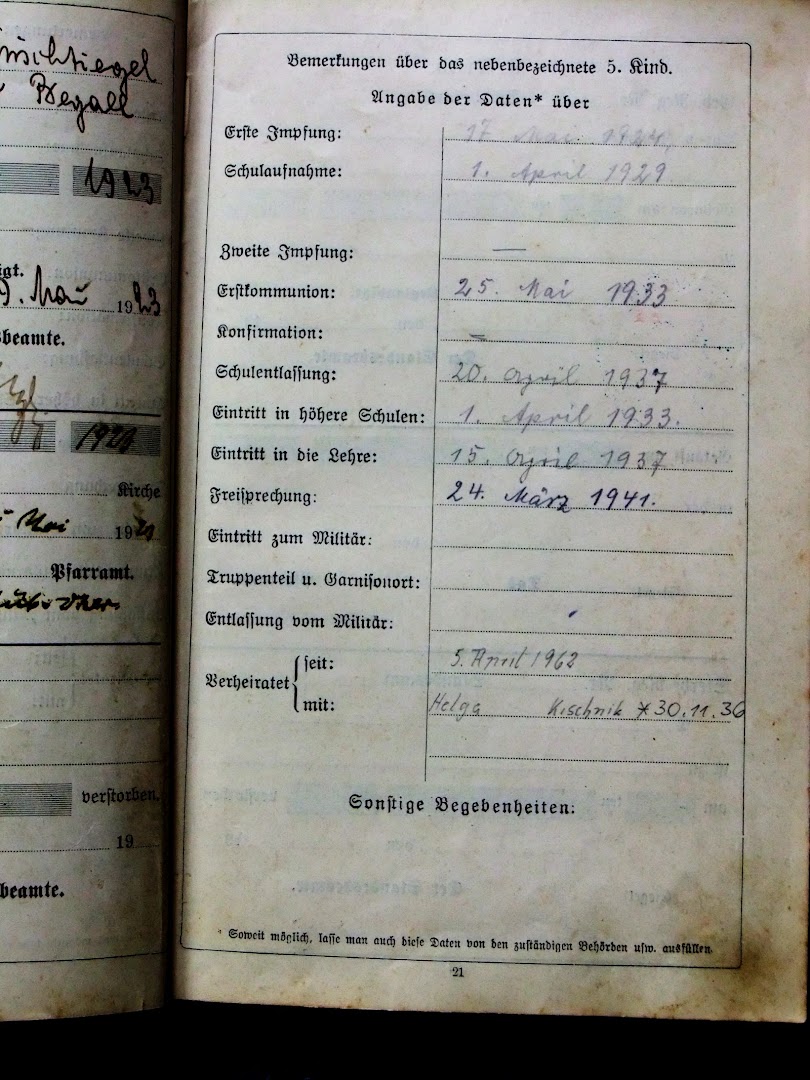 Begall
1923
igt.
1923
sbeamte.
Kirche
Mai 19
Pfarramt.
verstorben.
19
beamte.
Bemerkungen über das nebenbezeichnete 5. Kind.
Angabe der Daten* über
Erste Impfung: 17 Mai 1924
Schulaufnahme: 1. April 1929
Zweite Impfung: —
Erstkommunion: 25. Mai 1933
Konfirmation: –
Schulentlassung: 20. April 1937
Eintritt in höhere Schulen: 1. April 1933.
Eintritt in die Lehre: 15. April 1937
Freisprechung: 24. März 1941.
Eintritt zum Militär:
Truppenteil u. Garnisonort:
Entlassung vom Militär:
Verheiratet { seit: 5. April 1962
mit: Helga Kischnik * 30.11.36
Sonstige Begebenheiten:
* Soweit möglich, lasse man auch diese Daten von den zuständigen Behörden usw. ausfüllen.
21